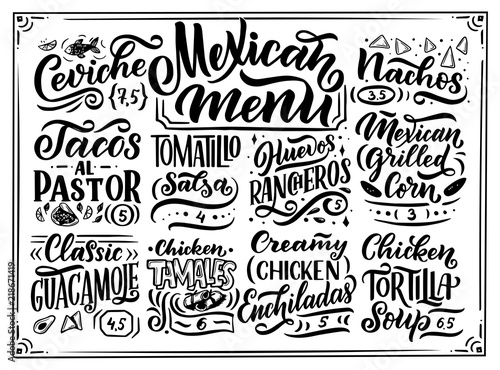 Mexican
menu
Ceviche
{7,5}
Nachos
3.5
Tacos
AL
PASTOR
5
TOMATILLO
Salsa
4
Huevos
RANCHEROS
5
Mexican
Grilled
Corn
3
Classic
GUACAMOLE
4,5
Chicken
TAMALES
6
Creamy
(CHICKEN)
Enchiladas
5
Chicken
TORTILLA
Soup 6.5
Adobe Stock | #218671419